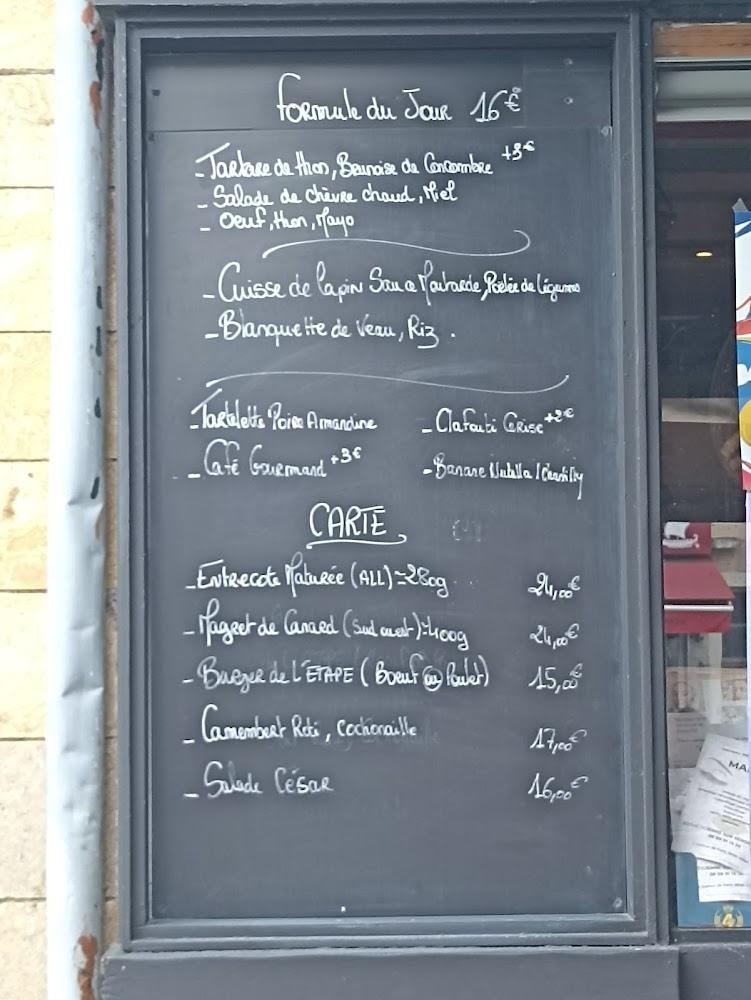 Formule du Jour 16€
- Tartare de thon, Beurnoise de Concombre +3€
- Salade de chèvre chaud, Miel
- Oeuf, thon, Mayo
- Cuisse de lapin Sauce Moutarde, Poêlée de légumes
- Blanquette de Veau, Riz.
- Tartelette Poire Amandine
- Clafouti Cerise +2€
- Café Gourmand +3€
- Banane Nutella / Chantilly
CARTE
- Entrecote Maturée (ALL) ≃ 280g 24,00€
- Magret de Canard (Sud ouest) ≃ 400g 24,00€
- Burger de L'ETAPE (Boeuf ou Poulet) 15,00€
- Camembert Roti, Cochonaille 17,00€
- Salade César 16,00€